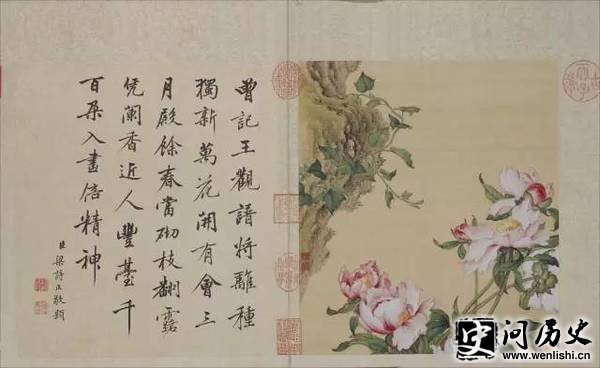 曾記王觀譜將離種
獨新萬花開有會三
月殿餘春當砌枝翻露
凭闌香近人豐臺千
百朶入畫倍精神
臣梁詩正敬題
问历史
www.wenlishi.com